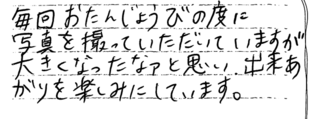 毎回おたんじょうびの度に
写真を撮っていただいていますが
大きくなったなァと思い、出来あ
がりを楽しみにしています。